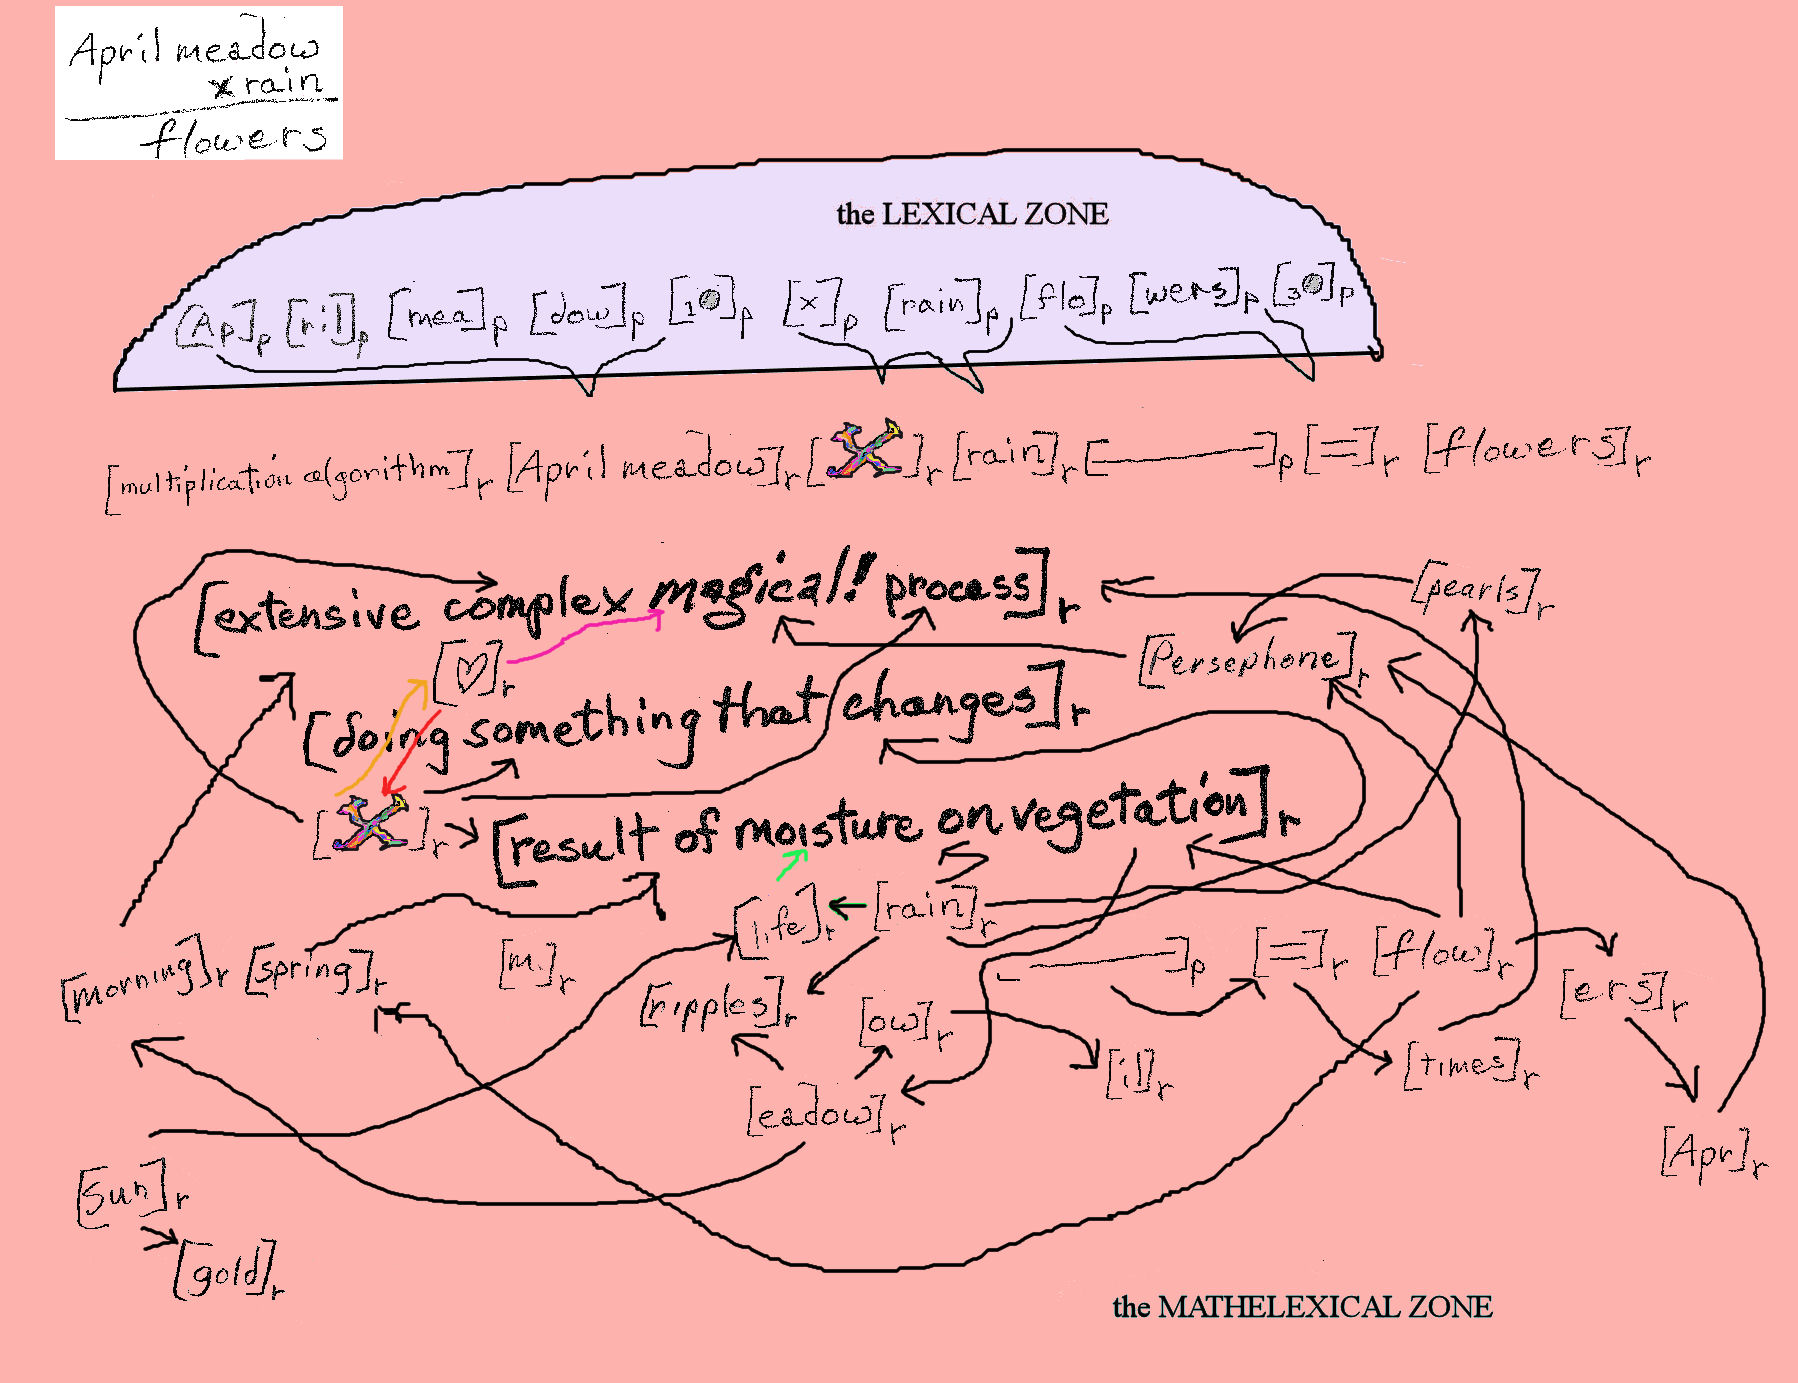 April meadow
x rain
flowers
the LEXICAL ZONE
[Ap]p [ril]p [mea]p [dow]p [1●]p [x]p [rain]p [flo]p [wers]p [3●]p
[multiplication algorithm]r [April meadow]r [X]r [rain]r [———]p [=]r [flowers]r
[extensive complex magical! process]r
[pearls]r
[♡]r
[Persephone]r
[doing something that changes]r
[X]r
[result of moisture on vegetation]r
[morning]r [spring]r [m.]r [life]r [rain]r
———]p [=]r [flow]r
[ripples]r [ow]r [ers]r
[il]r [times]r
[eadow]r
[Apr]r
[Sun]r
[gold]r
the MATHELEXICAL ZONE